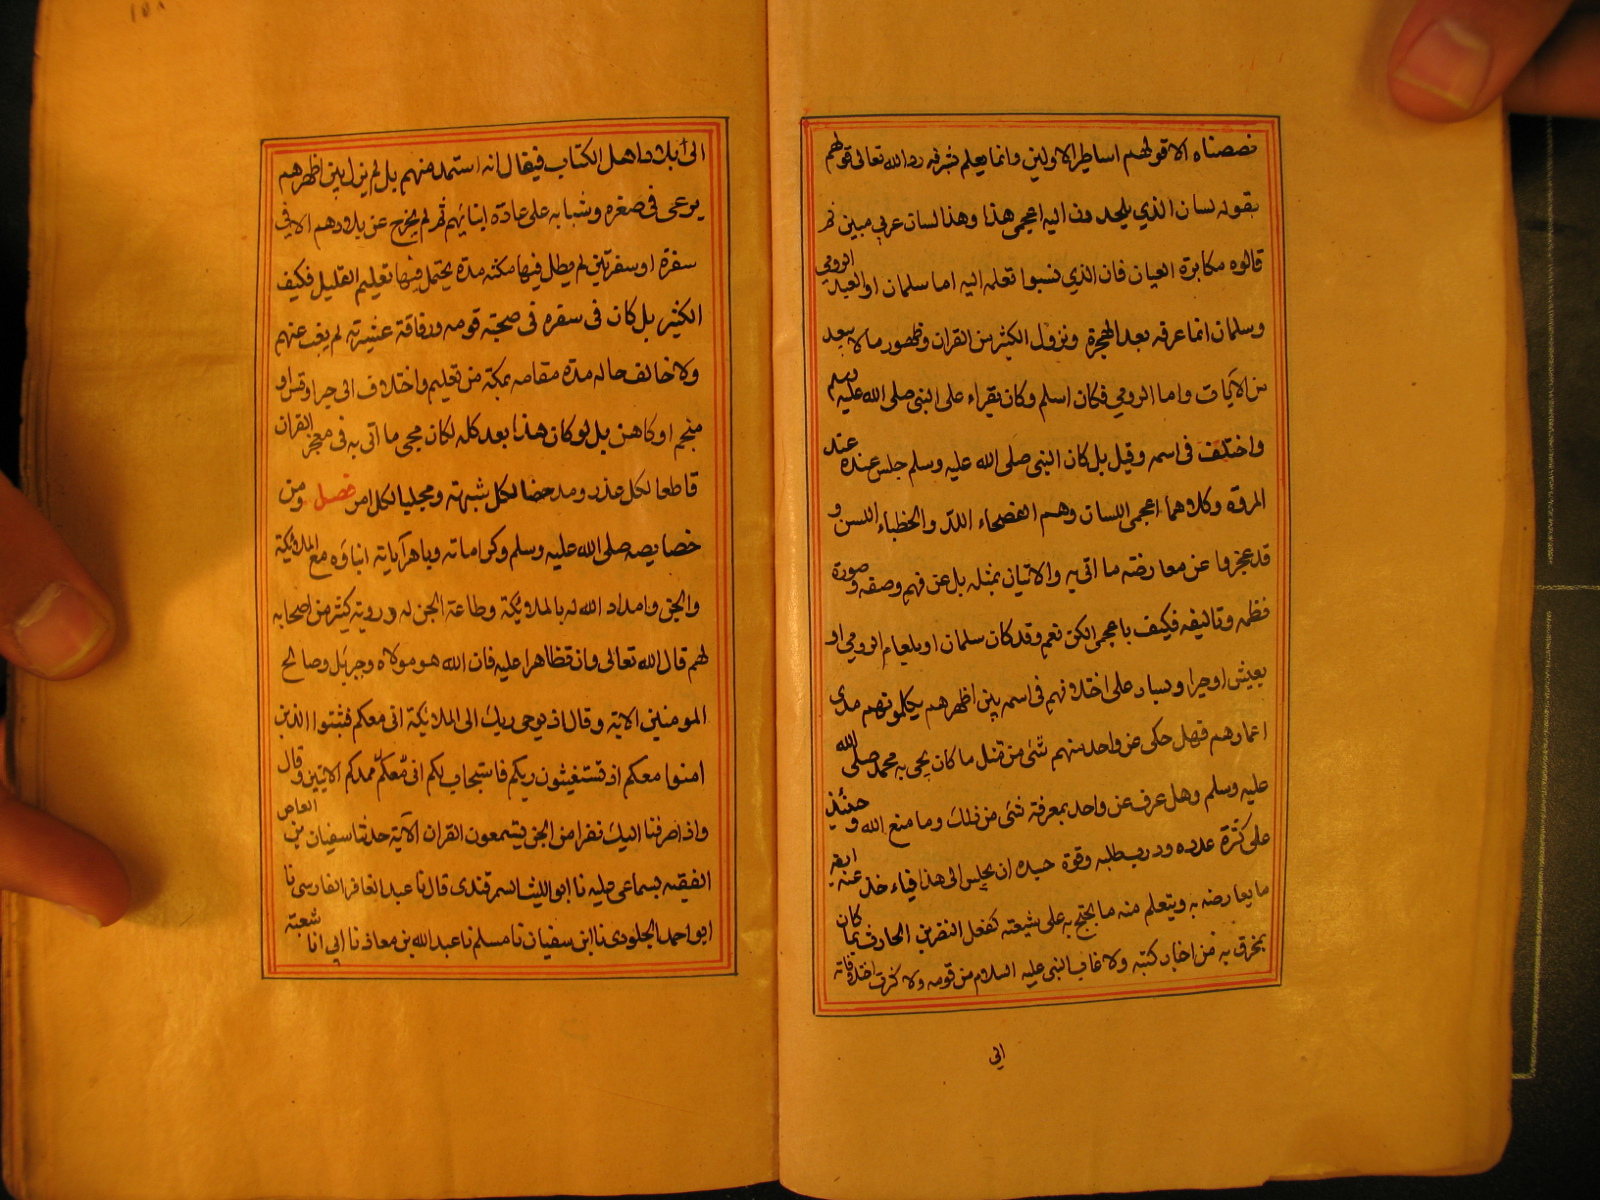 نصصناه الا قولهم اساطير الاولين وانما يعلمه بشر فرد الله تعالى قولهم
بقوله لسان الذي يلحدون اليه اعجمي هذا وهذا لسان عربي مبين ثم
قالوه مكابرة العيان فان الذي نسبوا تعلمه اليه اما سلمان او العبد الرومي
وسلمان انما عرفه بعد الهجرة ونزول الكثير من القران وظهور مالا يبعد
من الايات واما الرومي فكان اسلم وكان يقراء على النبي صلى الله عليه وسلم
واختلف في اسمه وقيل بل كان النبي صلى الله عليه وسلم جلس عنده عند
المروة وكلاهما اعجمي اللسان وهم الفصحاء اللد والخطباء اللسن و
قد عجزوا عن معارضة ما اتى به والاتيان بمثله بل عن فهم وصفه وصورة
نظمه وتاليفه فكيف باعجمي الكن نعم وقد كان سلمان او بلعام الرومي او
يعيش او جبرا ويسار على اختلافهم في اسمه بين اظهرهم يكلمونهم مدى
اعمارهم فهل حكى عن واحد منهم شئ من مثل ما كان يجى به محمد صلى الله
عليه وسلم وهل عرف عن واحد بمعرفة شئ من ذلك وما منع الله وحينئذ
على كثرة عدده ودرب طلبه وقوة حسده ان يجلس الى هذا فياء خذ عنه ايضه
ما يعارضه به ويتعلم منه ما يحتج به على شيعته كفعل النضر بن الحارث بما كان
يمخرق به من اخبار كتبه ولا غاب النبي عليه السلام من قومه ولا كثرت اختلافاته
الى
١٥٨
الى بلاد اهل الكتاب فيقال انه استمد منهم بل لم يزل بين اظهرهم
يرعى في صغره وشبابه على عادة ابنايهم ثم لم يخرج عن بلادهم الا في
سفرة او سفرتين لم يطل فيها مكثه مدة يحتمل فيها تعليم القليل فكيف
الكثير بل كان في سفره في صحبة قومه ورفاقة عشيرته لم يغب عنهم
ولا خالف حاله مدة مقامه بمكة من تعليم واختلاف الى حبر او قس او
منجم او كاهن بل لو كان هذا بعد كله لكان مجى ما اتى به في معجز القران
قاطعا لكل عذر ومدحضا لكل شبهة ومجليا لكل امر فصل ومن
خصايصه صلى الله عليه وسلم وكراماته وباهر آياته انباؤه مع الملائكة
والجن وامداد الله له بالملائكة وطاعة الجن له ورويته كثير من اصحابه
لهم قال الله تعالى وان تظاهرا عليه فان الله هو مولاه وجبريل وصالح
المومنين الاية وقال اذ يوحى ربك الى الملائكة انى معكم فثبتوا الذين
امنوا معكم اذ تستغيثون ربكم فاستجاب لكم انى معكم ممدكم الايتين وقال
واذ صرفنا اليك نفرا من الجن يستمعون القران الآية حدثنا سفيان بن العاص
الفقيه بسماعى عليه نا ابو الليث السمرقندى قال نا عبد الغافر الفارسى نا
ابو احمد الجلودى نا ابن سفيان نا مسلم نا عبد الله بن معاذ نا ابى انا شعبة